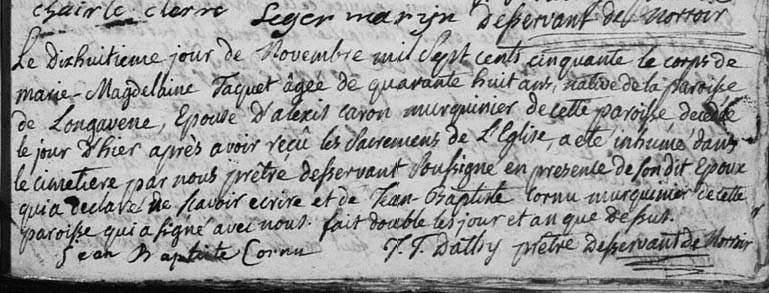 chair le clerre Leger marijn desservant de Norroir
Le dixhuitieme jour de Novembre mil sept cents cinquante le corps de
marie-Magdelaine Taquet âgée de quarante huit ans, native de la paroisse
de Longavene, Epouse d'alexit caron murquinier de cette paroisse decédée
le jour d'hier après avoir reçû les Sacremens de L'Eglise, a eté inhumé dans
le cimetiere par nous prêtre desservant soussigné en presente de son dit Epoux
qui a declaré ne scavoir ecrire et de Jean-Baptiste Cornu murquinier de cette
paroisse qui a signé avec nous. fait double les jour et an que dessus.
Jean Baptiste Cornu J. J. Dathy prêtre desservant de Norroir